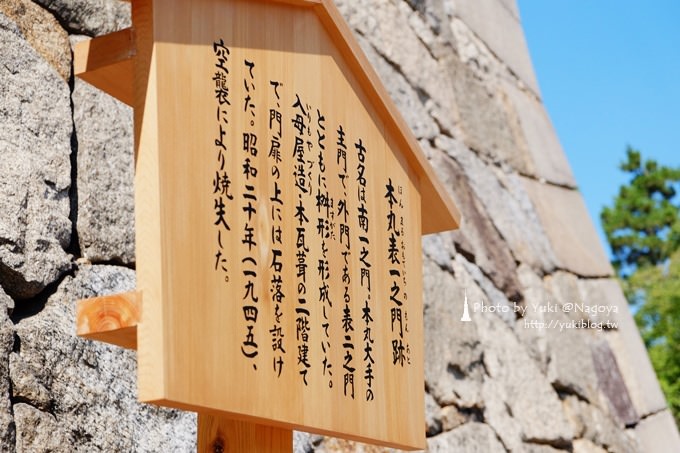 本丸表一之門跡
ほんまるおもていちのもんあと
古名は南一之門、本丸大手の
主門で、外門である表二之門
とともに枡形を形成していた。
ますがた
入母屋造・本瓦葺の二階建て
いりもやづくり
で、門扉の上には石落を設け
ていた。昭和二十年(一九四五)、
空襲により焼失した。
Photo by Yuki @Nagoya
http://yukiblog.tw